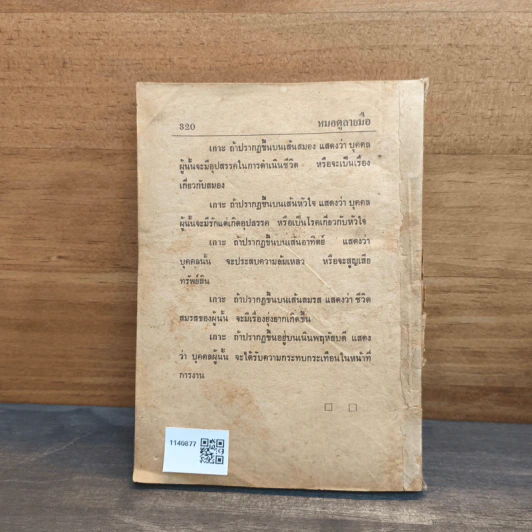 320 หมอดูลายมือ
เกาะ ถ้าปรากฏขึ้นบนเส้นสมอง แสดงว่า บุคคล
ผู้นั้นจะมีอุปสรรคในการดำเนินชีวิต หรือจะเป็นเรื่อง
เกี่ยวกับสมอง
เกาะ ถ้าปรากฏขึ้นบนเส้นหัวใจ แสดงว่า บุคคล
ผู้นั้นจะมีรักแต่เกิดอุปสรรค หรือเป็นโรคเกี่ยวกับหัวใจ
เกาะ ถ้าปรากฏขึ้นบนเส้นอาทิตย์ แสดงว่า
บุคคลนั้น จะประสบความล้มเหลว หรือจะสูญเสีย
ทรัพย์สิน
เกาะ ถ้าปรากฏขึ้นบนเส้นสมรส แสดงว่า ชีวิต
สมรสของผู้นั้น จะมีเรื่องยุ่งยากเกิดขึ้น
เกาะ ถ้าปรากฏขึ้นอยู่บนเนินพฤหัสบดี แสดง
ว่า บุคคลผู้นั้น จะได้รับความกระทบกระเทือนในหน้าที่
การงาน
1146877